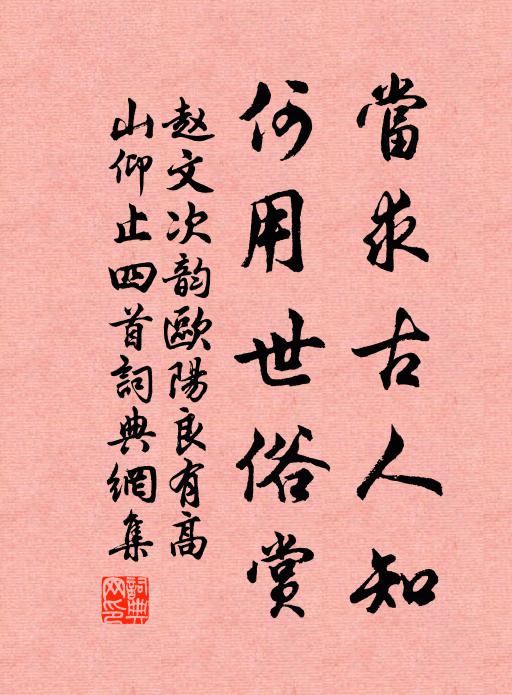 當求古人知
何用世俗賞
赵文次韵歐陽良有高
山仰止四首詞典網集
詞典網印